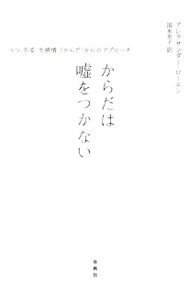 アレクサンダー・ローエン
国永史子 訳
うつ・不安・生感情〈からだ〉からのアプローチ
からだは
嘘をつかない
春秋社